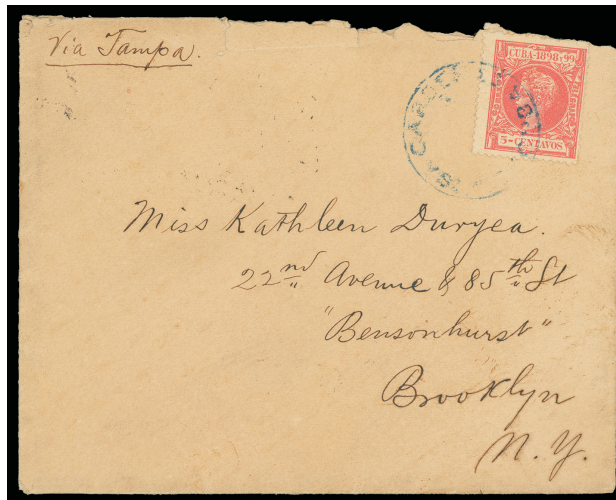 Via Tampa.
CUBA-1898 Y 99
5-CENTAVOS
CARDENAS
Miss Kathleen Duryea.
22nd Avenue & 85th St
"Bensonhurst"
Brooklyn
N.Y.